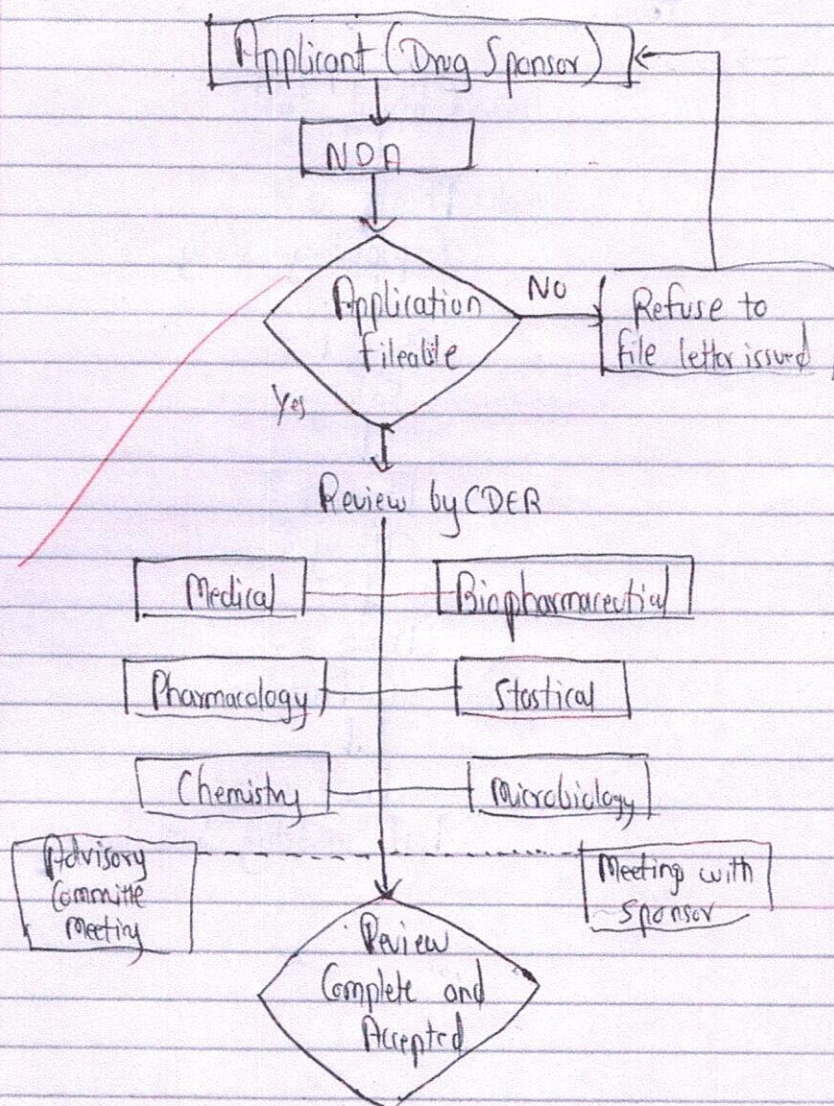 Applicant (Drug Sponsor)
NDA
Application
fileable
NO
Refuse to
file letter issued
Yes
Review by CDER
Medical
Biopharmaceutial
Pharmacology
Stastical
Chemistry
Microbiology
Advisory
Committe
Meeting
Meeting with
Sponsor
Review
Complete and
Accepted